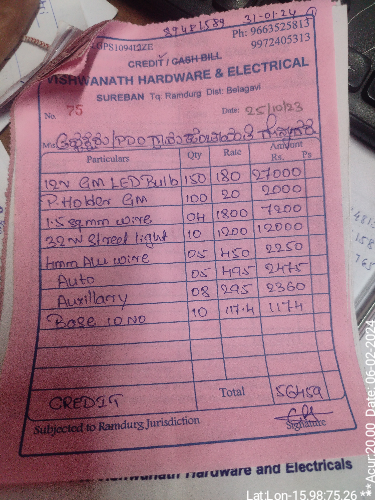 89481589 31-01-24
GPS109412ZE Ph: 9663525813
9972405313
CREDIT / CASH BILL
VISHWANATH HARDWARE & ELECTRICAL
SUREBAN Tq: Ramdurg Dist: Belagavi
No. 75 Date: 25/10/23
M/s
Particulars Qty Rate Amount
Rs. Ps
12w GM LED Bulb 150 180 27000
P. Holder GM 100 20 2000
1.5 sqmm wire 04 1800 7200
32w Street light 10 1200 12000
4mm Alu wire 05 450 2250
Auto 05 495 2475
Auxillarry 08 295 2360
Base 10 NO 10 117.4 1174
CREDIT Total 56459
Subjected to Ramdurg Jurisdiction Signature
Hardware and Electricals
Lat:Lon-15.98:75.26 **Acur:20.00 Date: 06-02-2024